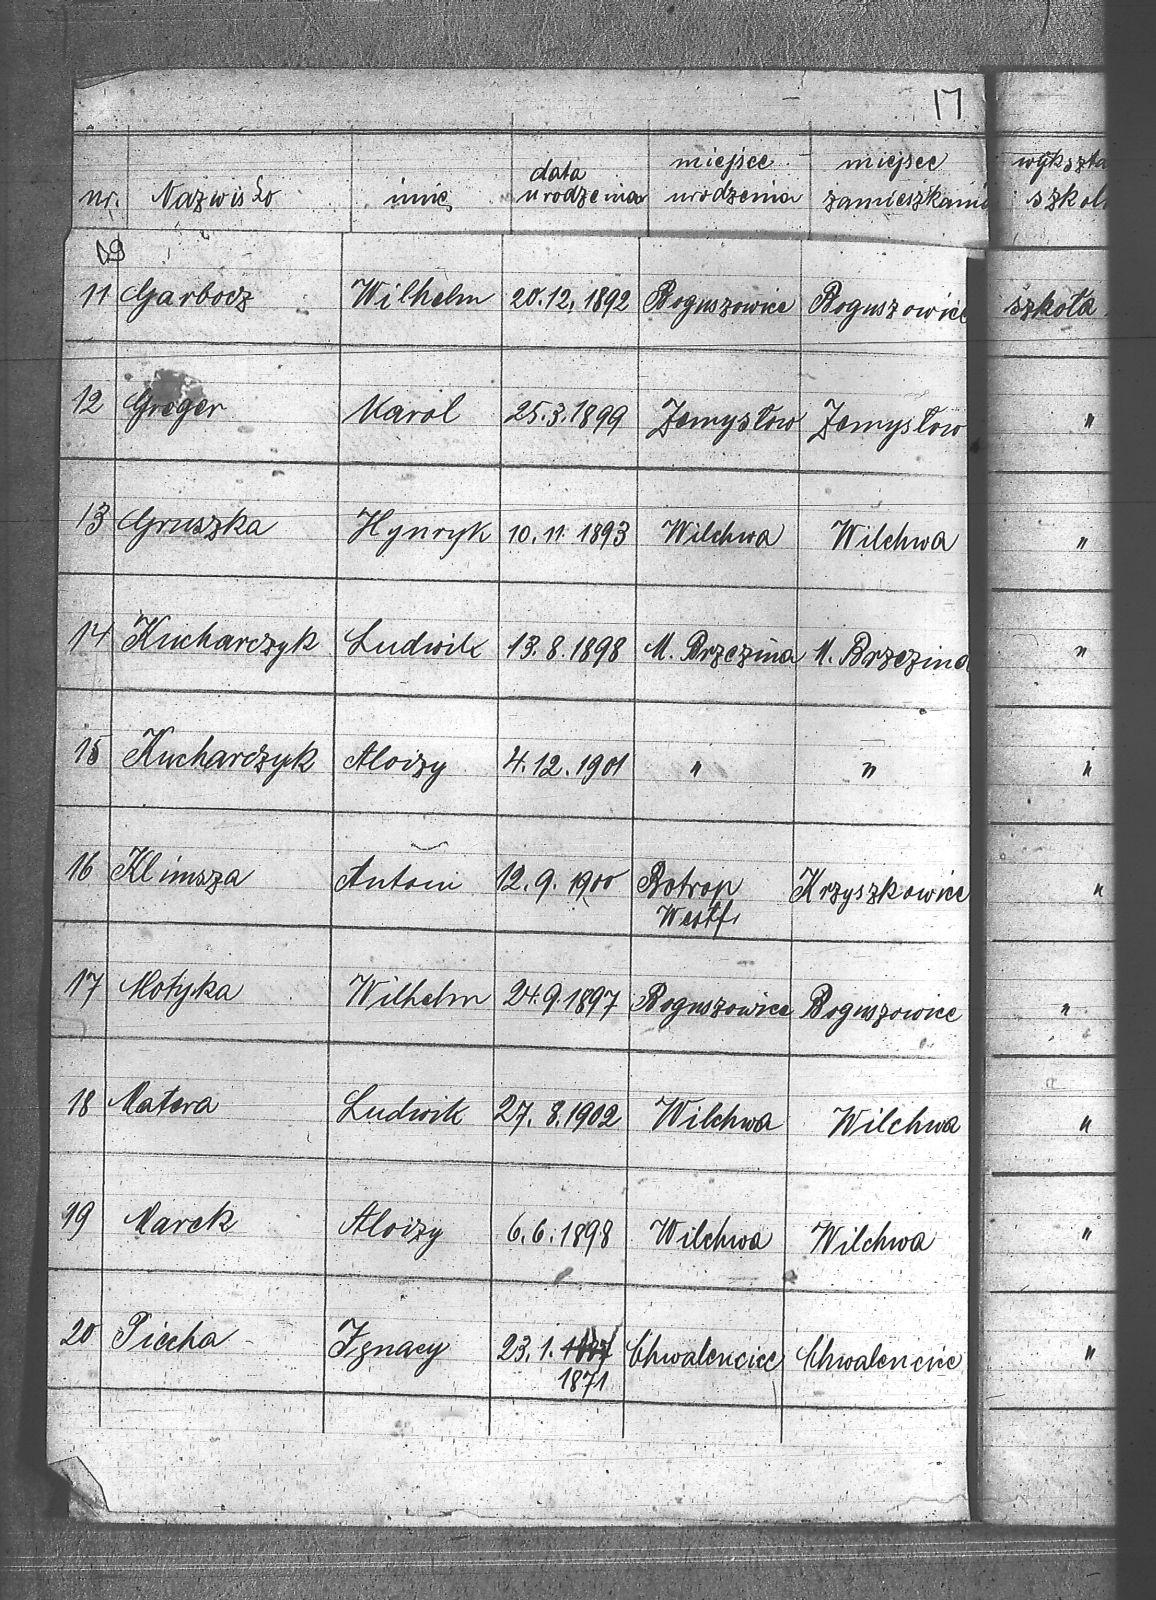 17
nr. Nazwisko imię data urodzenia miejsce urodzenia miejsce zamieszkania wykszta szkol
11 Garbocz Wilhelm 20.12.1892 Boguszowice Boguszowice szkoła
12 Greger Karol 25.3.1899 Jemysłow Jemysłow "
13 Gruszka Hynryk 10.11.1893 Wilchwa Wilchwa "
14 Kucharczyk Ludwik 13.8.1898 M. Brzezina M. Brzezina "
15 Kucharczyk Aloizy 4.12.1901 " " "
16 Klimsza Antoni 12.9.1900 Botrop Krzyszkowice "
Westf.
17 Motyka Wilhelm 24.9.1897 Boguszowice Boguszowice "
18 Matera Ludwik 27.8.1902 Wilchwa Wilchwa "
19 Marek Aloizy 6.6.1898 Wilchwa Wilchwa "
20 Piecha Ignacy 23.1. Chwalencice Chwalencice "
1871